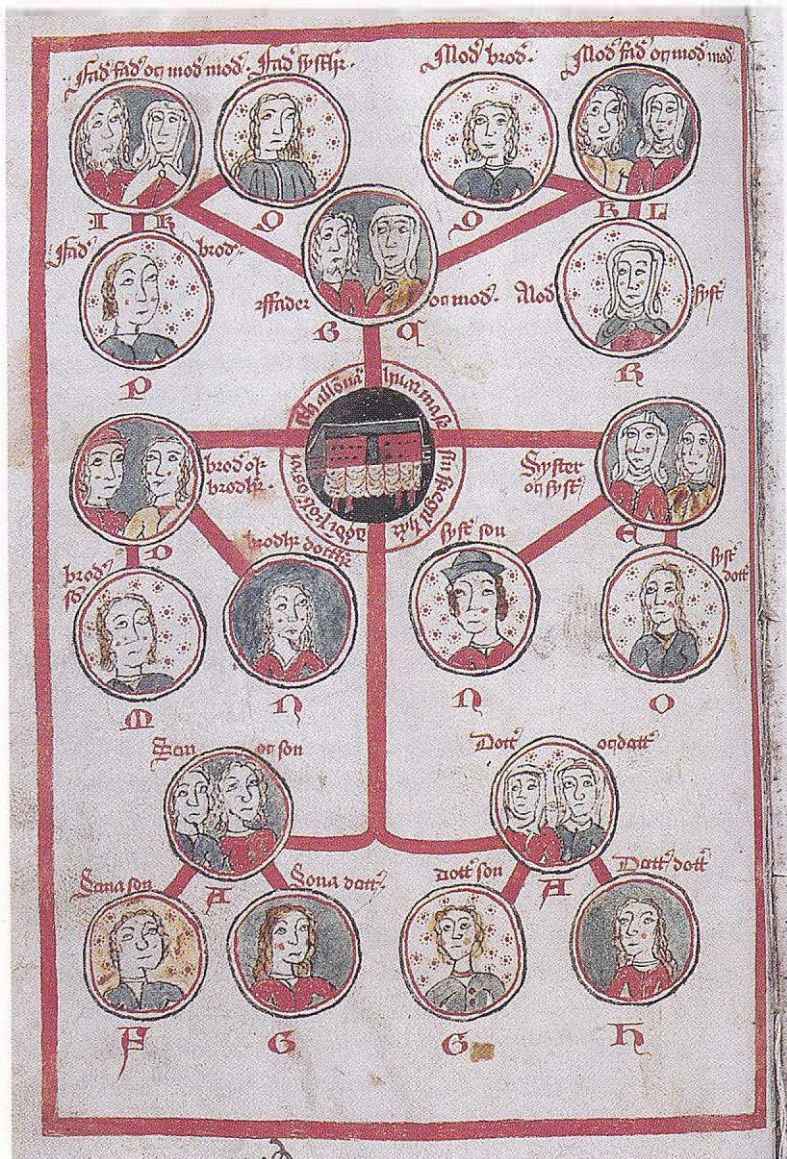 Fad᷎ fad᷎ oꝗ mod᷎ mod᷎. Fad᷎ systir.
Mod᷎ brod᷎. Mod᷎ fad᷎ oꝗ mod᷎ mod᷎
I K O O K L
Fad᷎ brod᷎.
ffader oꝗ mod᷎.
Mod᷎ syst᷎
B
P R
brod᷎ ok
brodhr.
Syster
oꝗ syst᷎
D
brodhr dott᷎
syst᷎ son
brod᷎
syst᷎
dott᷎
M N N O
Son oꝗ son
Dott᷎ oꝗ dott᷎
A A
Sona son
Sona dott᷎.
Dott᷎ son
Dott᷎ dott᷎
F G G H